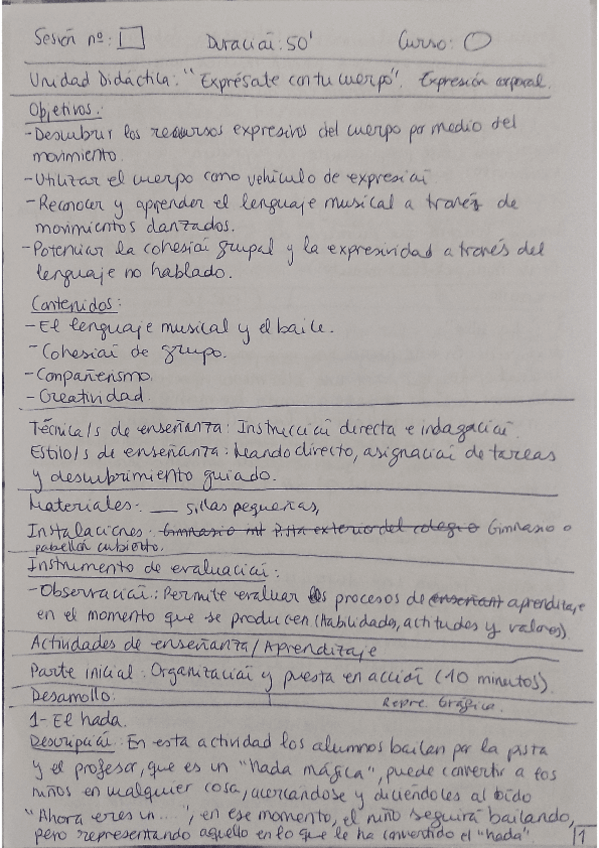 Sesión nº: I Duración: 50' Curso:
Unidad Didáctica: "Exprésate con tu cuerpo". Expresión corporal.
Objetivos:
-Descubrir los recursos expresivos del cuerpo por medio del
movimiento.
-Utilizar el cuerpo como vehículo de expresión
-Reconocer y aprender el lenguaje musical a través de
movimientos danzados.
-Potenciar la cohesión grupal y la expresividad a través del
lenguaje no hablado.
Contenidos:
-El lenguaje musical y el baile.
-Cohesión de grupo.
-Compañerismo.
-Creatividad
Técnica/s de enseñanza: Instrucción directa e indagación.
Estilo/s de enseñanza: Mando directo, asignación de tareas
y descubrimiento guiado.
Materiales: __ sillas pequeñas,
Instalaciones: Gimnasio Pista exterior del colegio Gimnasio o
pabellón cubierto.
Instrumento de evaluación:
-Observación: Permite evaluar los procesos de enseñan aprendizaje
en el momento que se producen (Habilidades, actitudes y valores)
Actividades de enseñanza/Aprendizaje
Parte inicial: Organización y puesta en acción (10 minutos).
Desarrollo: Repre. Gráfica.
1- El hada.
Descripción: En esta actividad los alumnos bailan por la pista
y el profesor, que es un "hada mágica", puede convertir a los
niños en cualquier cosa, acercándose y diciéndoles al oído
"Ahora eres un ....", en ese momento, el niño seguirá bailando,
pero representando aquello en lo que le ha convertido el "hada".
1